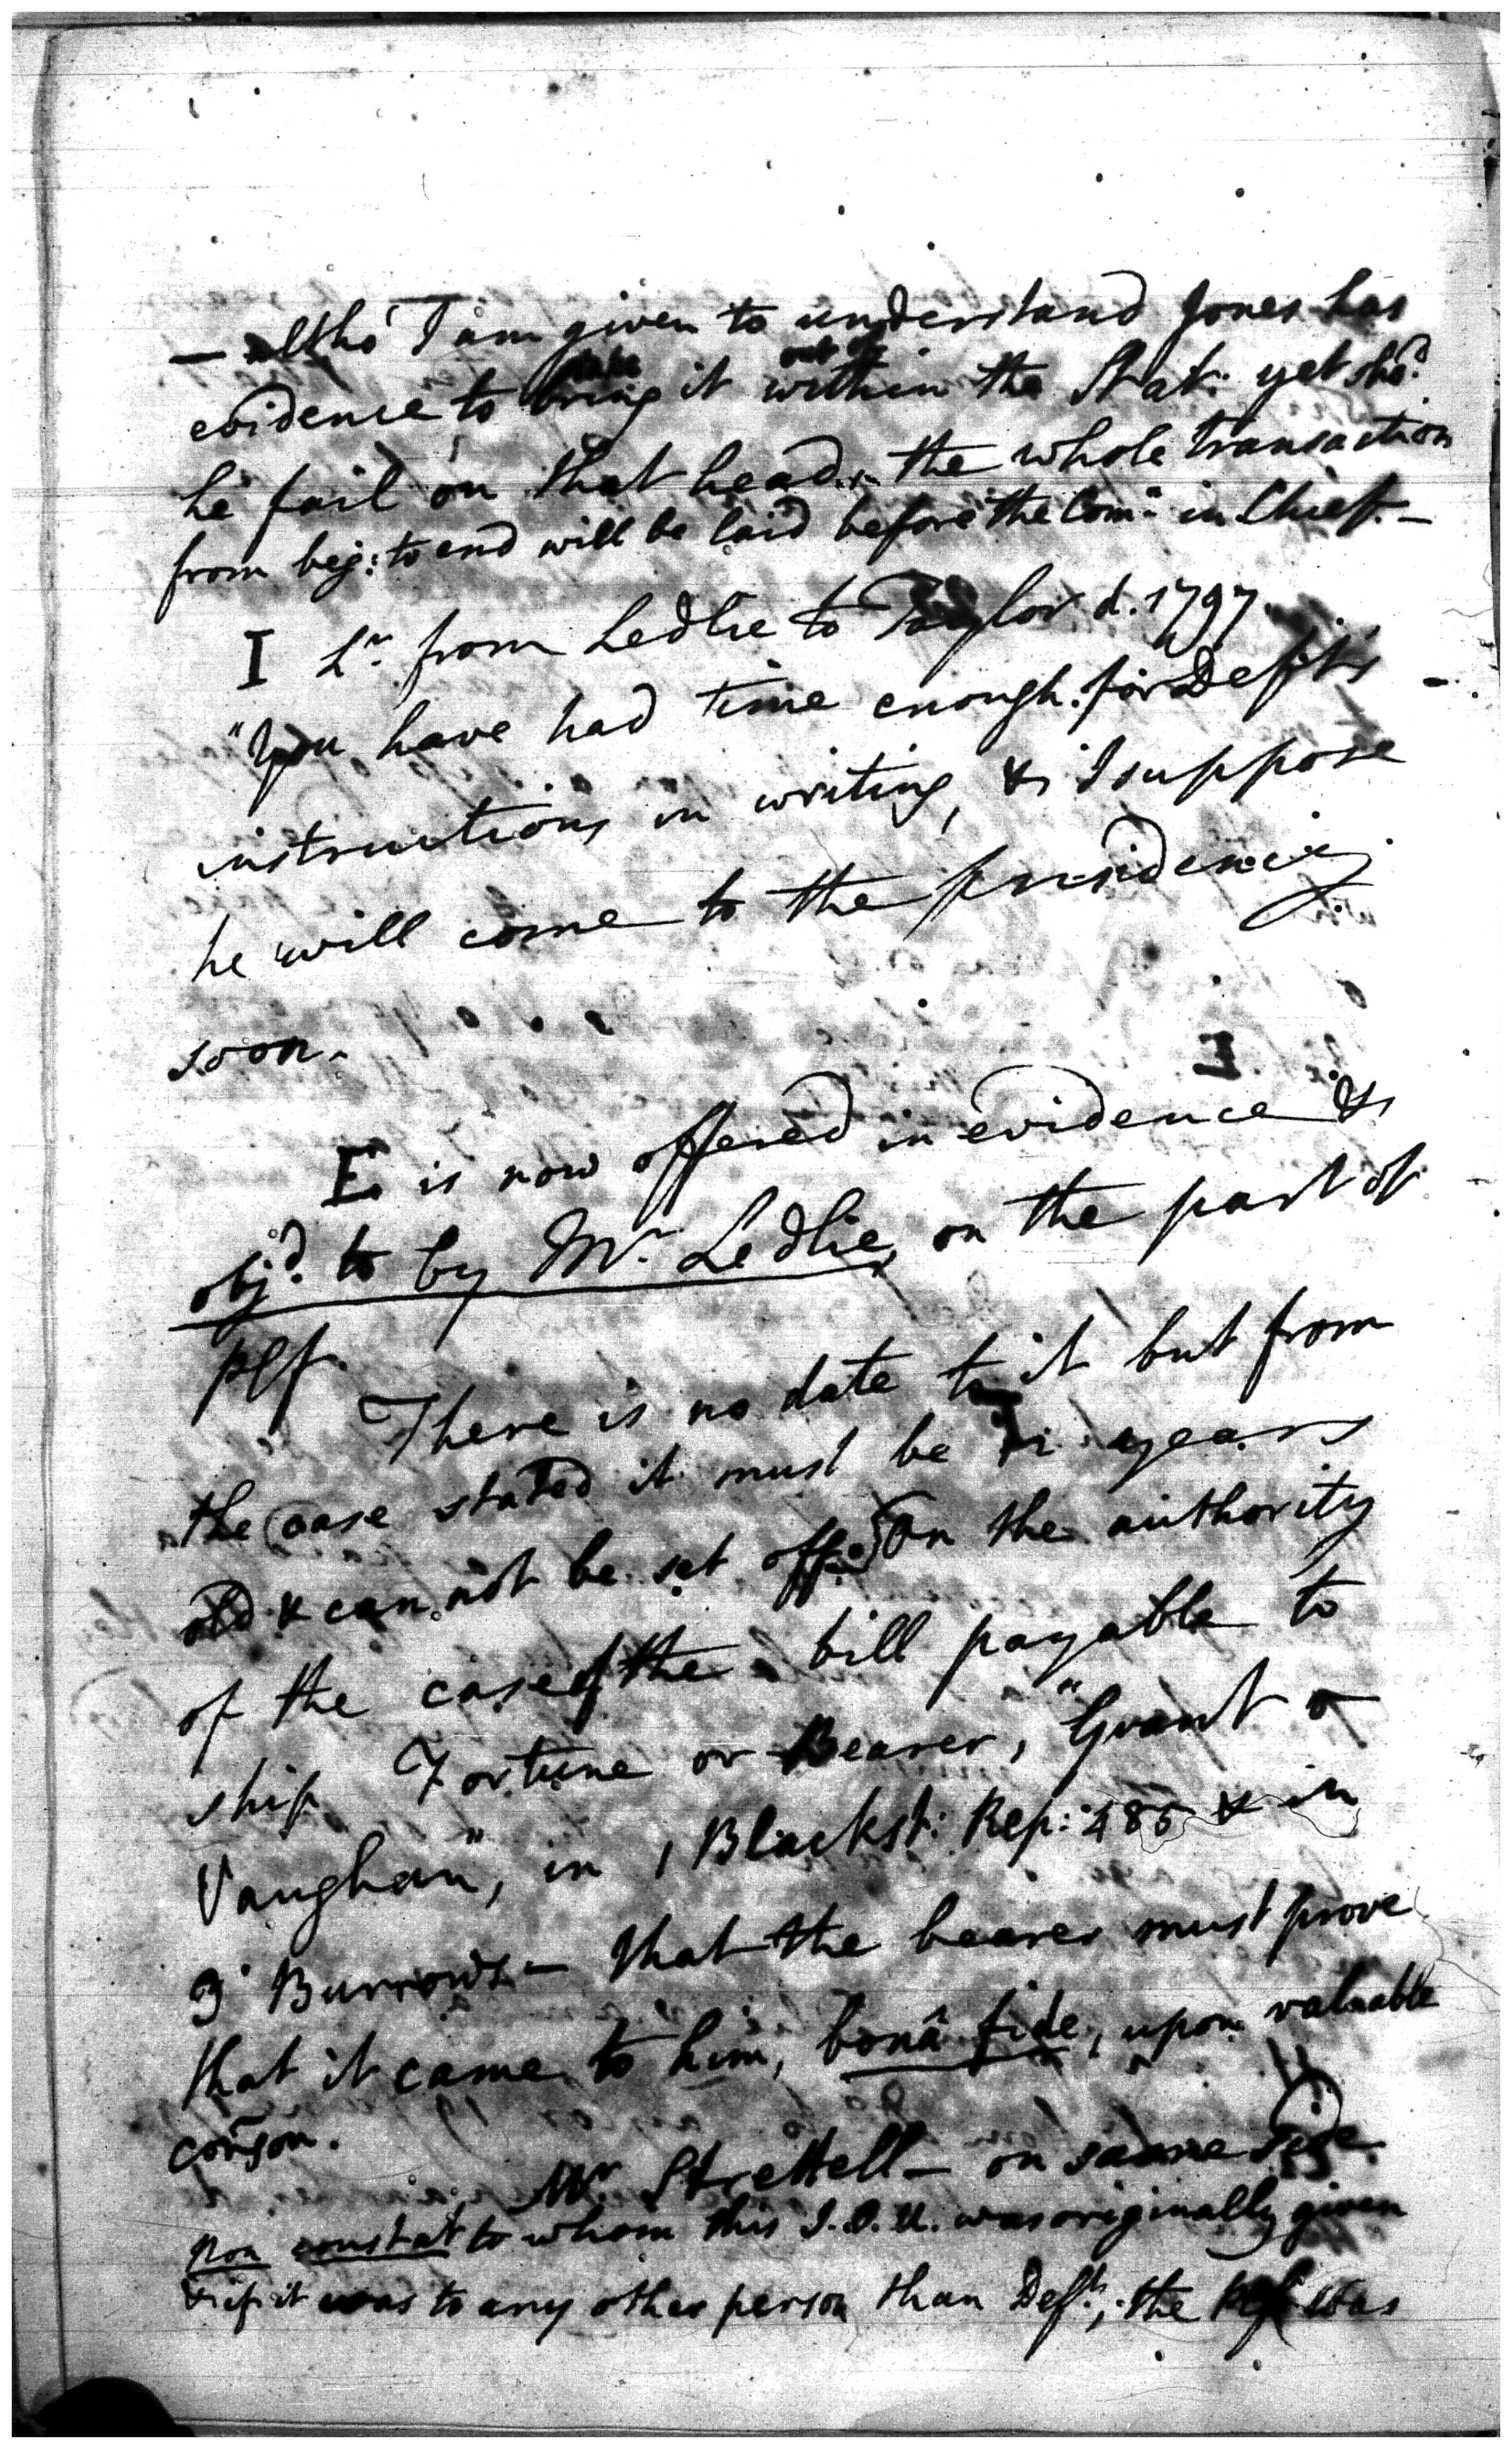 — altho' I am given to understand Jones has
take out of
evidence to bring it within the Stat: yet sho.d
he fail on that head, the whole transaction
from beg: to end will be laid before the Com.r in Chief. —
I L.r from Ledlie to Taylor d. 1797.
"You have had time enough for Deft's
instructions in writing, & I suppose
he will come to the presidency
soon.
E is now offered in evidence &
obj.d to by Mr. Ledlie, on the part of
plf.
There is no date to it but from
the case stated it must be years
old & can not be set off. On the authority
of the case of the bill payable to
ship Fortune or Bearer, "Grant v
Vaughan", in 1 Blackst: Rep: 485 & in
3 Burrows — that the bearer must prove
that it came to him, bonâ fide, upon valuable
conson.
Mr Strettell — on same side.
non constat to whom this I.O.U. was originally given
& if it was to any other person than Deft; the plf was